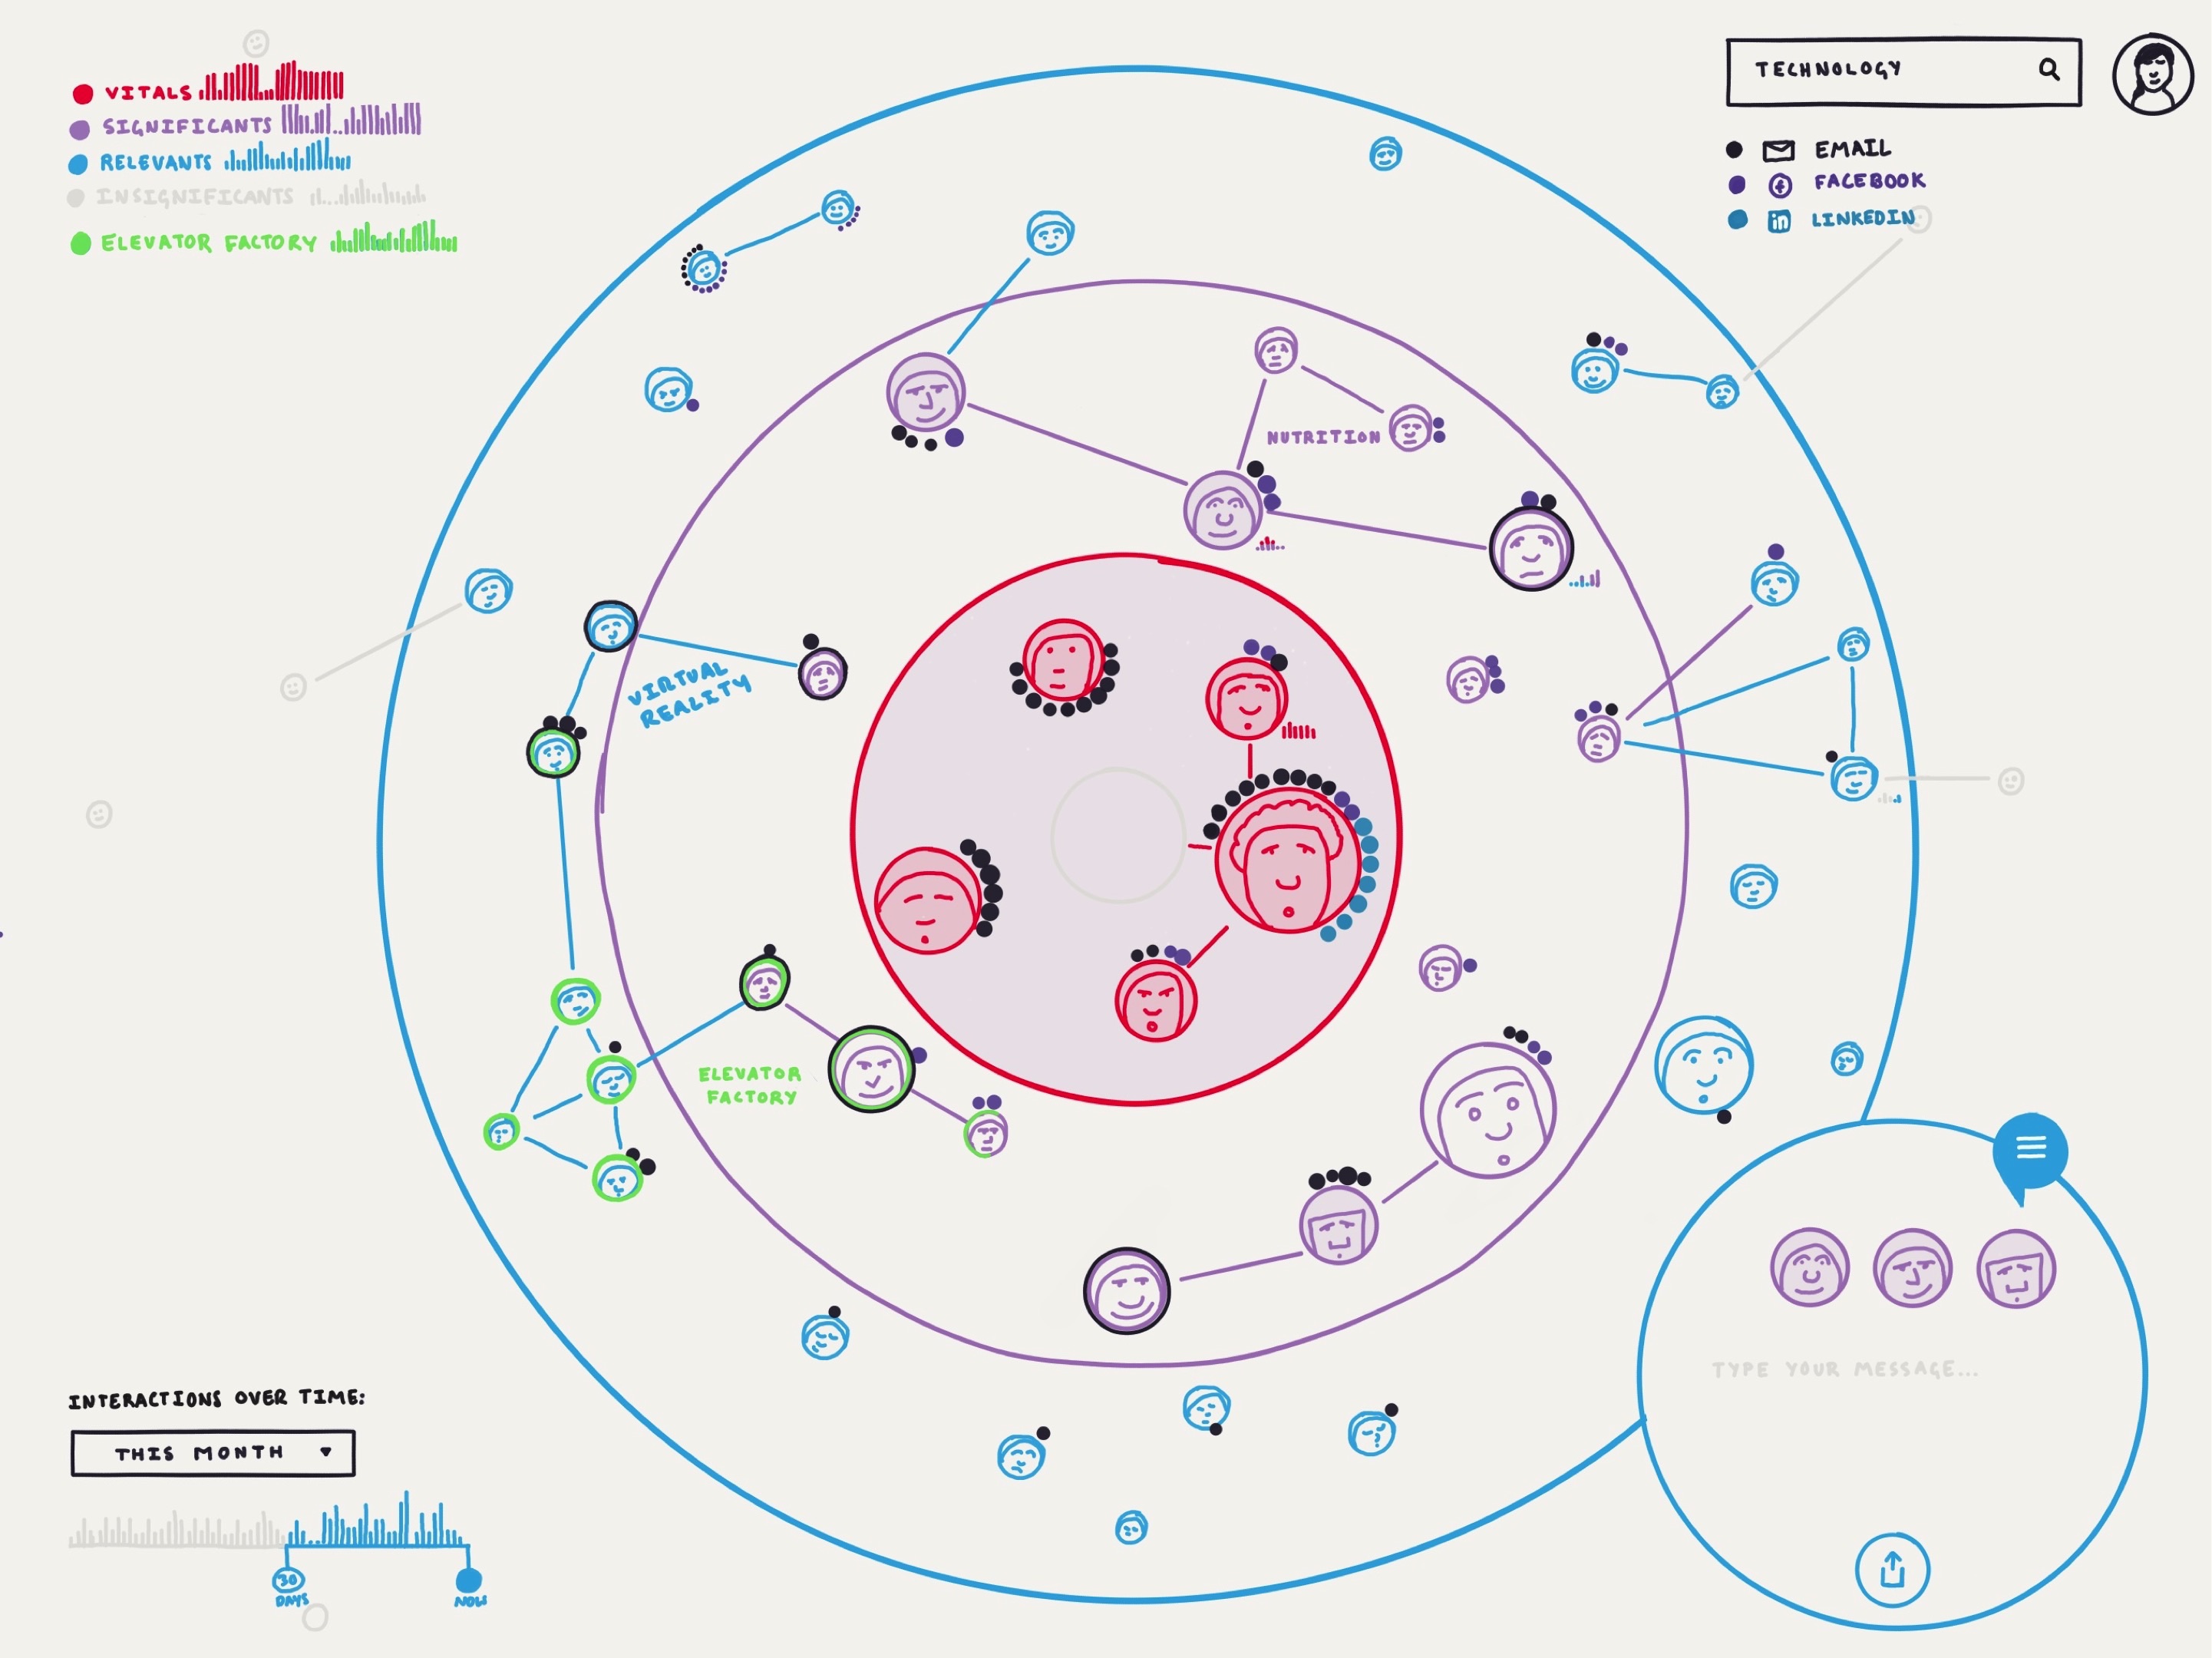 VITALS
SIGNIFICANTS
RELEVANTS
INSIGNIFICANTS
ELEVATOR FACTORY
TECHNOLOGY
EMAIL
FACEBOOK
in LINKEDIN
NUTRITION
VIRTUAL
REALITY
ELEVATOR
FACTORY
TYPE YOUR MESSAGE...
INTERACTIONS OVER TIME:
THIS MONTH
30
DAYS
NOW